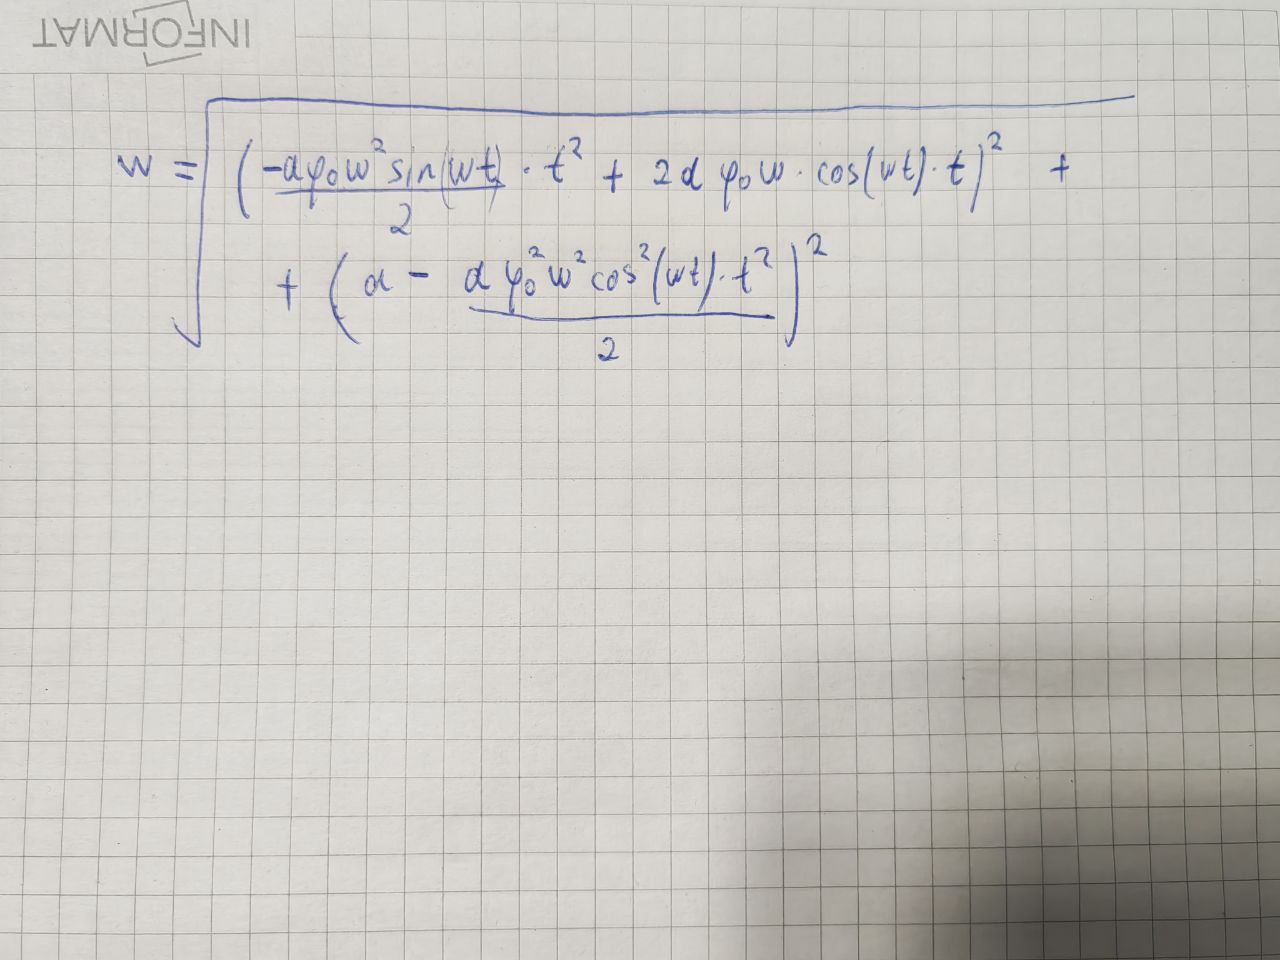 INFORMAT
w = √( (-αφ₀w² sin(wt)/2 · t² + 2α φ₀w · cos(wt) · t)² +
+ (α - α φ₀² w² cos²(wt) · t²/2)² )